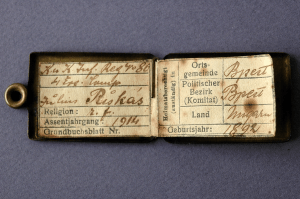 K. u. K. Inf. Reg. No 86
Julius Riskás
Religion: r. k.
Assentjahrgang: 1914
Grundbuchsblatt Nr.
Heimatsberechtigt
(zuständig) in
Orts-
gemeinde Bpest
Politischer
Bezirk
(Komitat) Bpest
Land Ungarn
Geburtsjahr: 1892